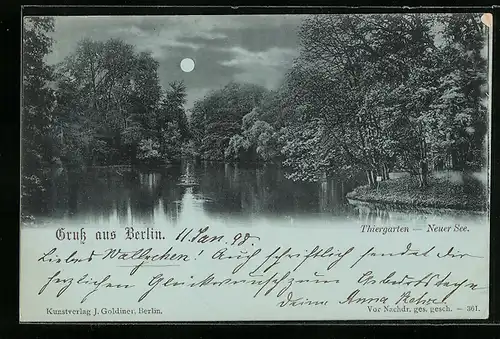 Gruß aus Berlin. 11 Jan. 98.
Thiergarten — Neuer See.
Liebes Wallychen! Auch schriftlich sendet Dir
herzlichen Glückwunsch zum Geburtstage
deine Anna
Kunstverlag J. Goldiner, Berlin.
Vor Nachdr. ges. gesch. — 361.